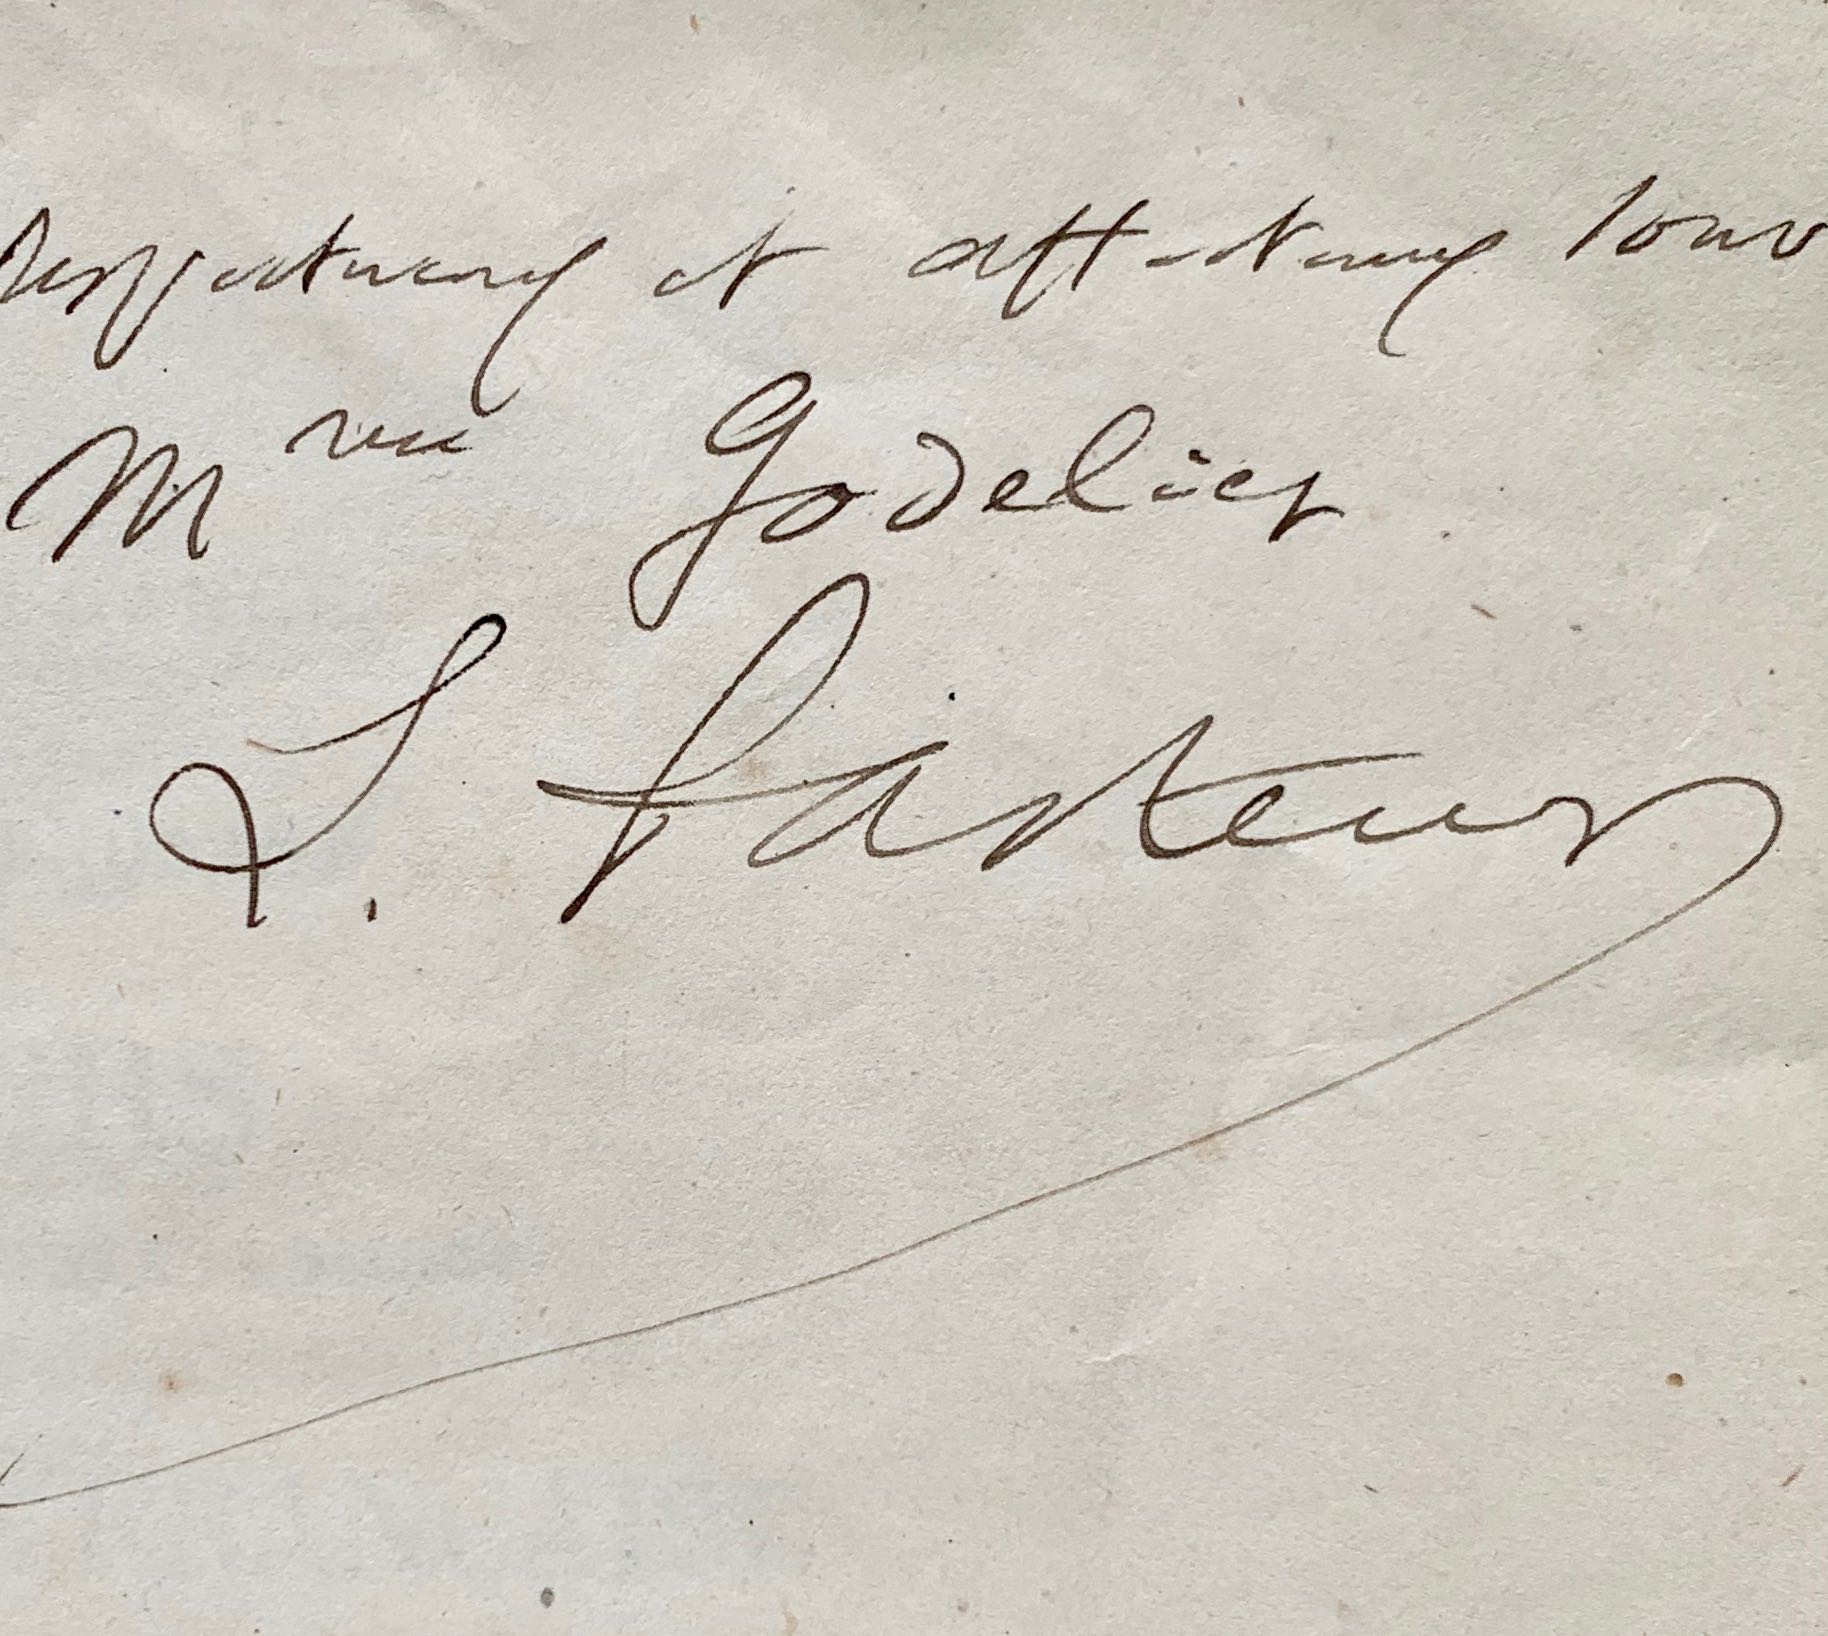 respectueux et affectueux souv
Mme Godelier.
L. Pasteur